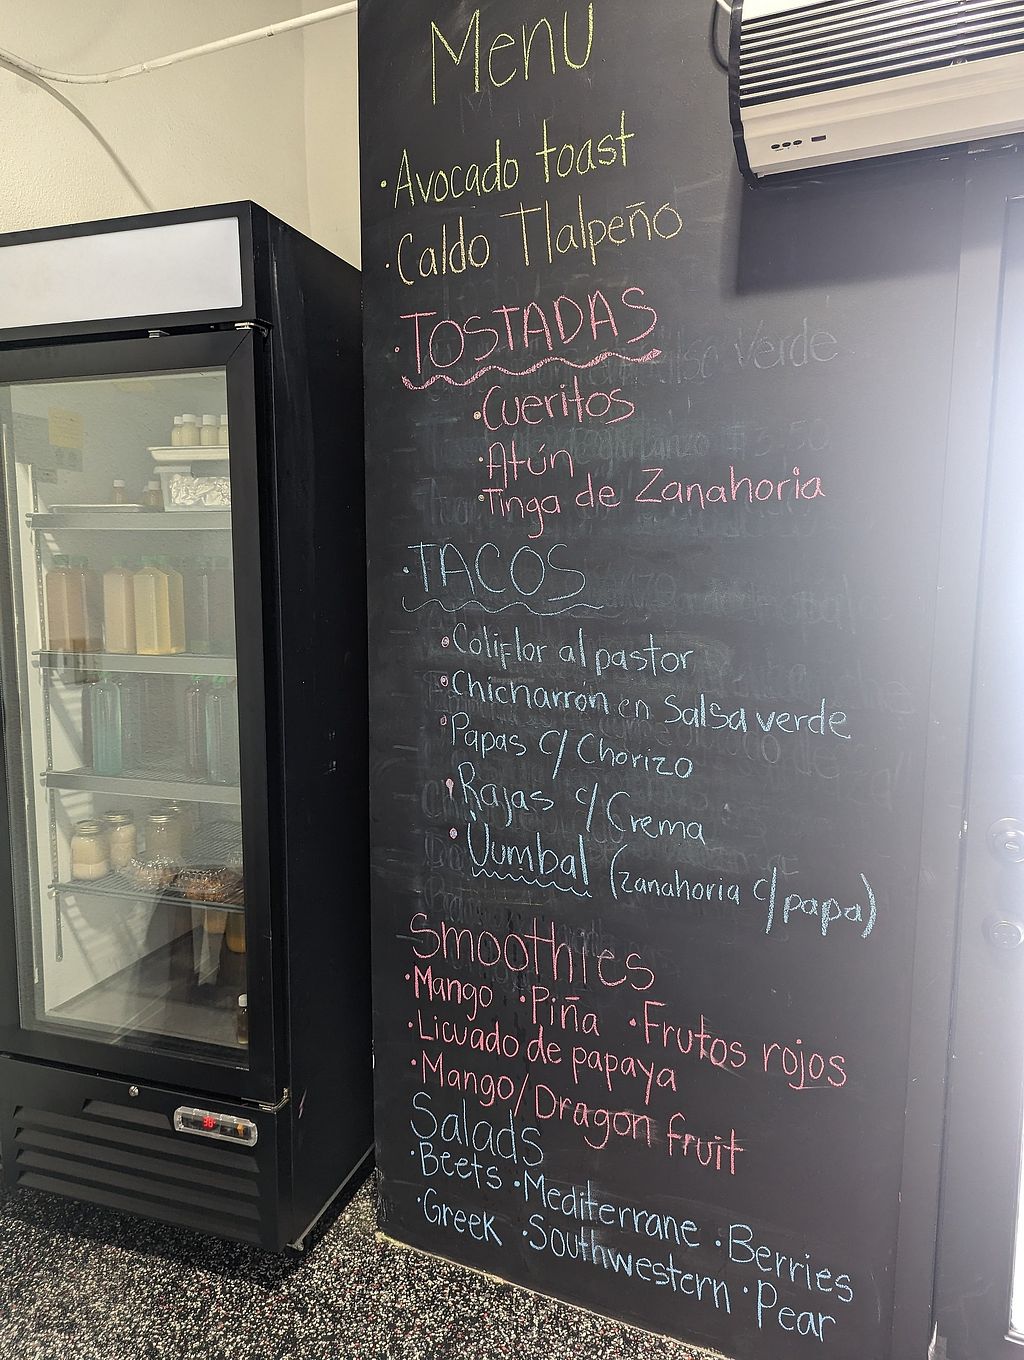 Menu
· Avocado toast
· Caldo Tlalpeño
· TOSTADAS
· Cueritos
· Atún
· Tinga de Zanahoria
· TACOS
· Coliflor al pastor
· Chicharrón en Salsa verde
· Papas c/ Chorizo
· Rajas c/ Crema
· Yumbal (zanahoria c/papa)
Smoothies
· Mango · Piña · Frutos rojos
· Licuado de papaya
· Mango/Dragon fruit
Salads
· Beets · Mediterrane · Berries
· Greek · Southwestern · Pear
38